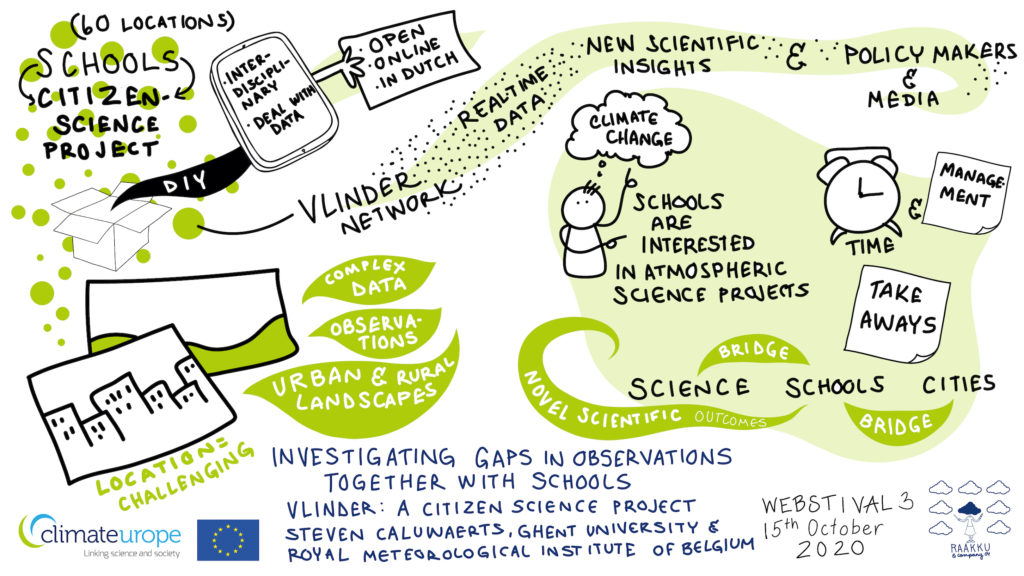 (60 LOCATIONS)
SCHOOLS
CITIZEN-
SCIENCE
PROJECT
DIY
• INTER-
DISCIPLI-
NARY
• DEAL WITH
DATA
• OPEN
• ONLINE
• IN DUTCH
VLINDER
NETWORK
REALTIME
DATA
NEW SCIENTIFIC
INSIGHTS
&
POLICY MAKERS
&
MEDIA
CLIMATE
CHANGE
SCHOOLS
ARE
INTERESTED
IN ATMOSPHERIC
SCIENCE PROJECTS
TIME
&
MANAGE-
MENT
TAKE
AWAYS
COMPLEX
DATA
OBSERVA-
TIONS
URBAN & RURAL
LANDSCAPES
LOCATION =
CHALLENGING
BRIDGE
SCIENCE SCHOOLS CITIES
NOVEL SCIENTIFIC OUTCOMES
BRIDGE
INVESTIGATING GAPS IN OBSERVATIONS
TOGETHER WITH SCHOOLS
VLINDER: A CITIZEN SCIENCE PROJECT
STEVEN CALUWAERTS, GHENT UNIVERSITY &
ROYAL METEOROLOGICAL INSTITUTE OF BELGIUM
WEBSTIVAL 3
15th October
2020
climateurope
Linking science and society
RAAKKU
& company.de